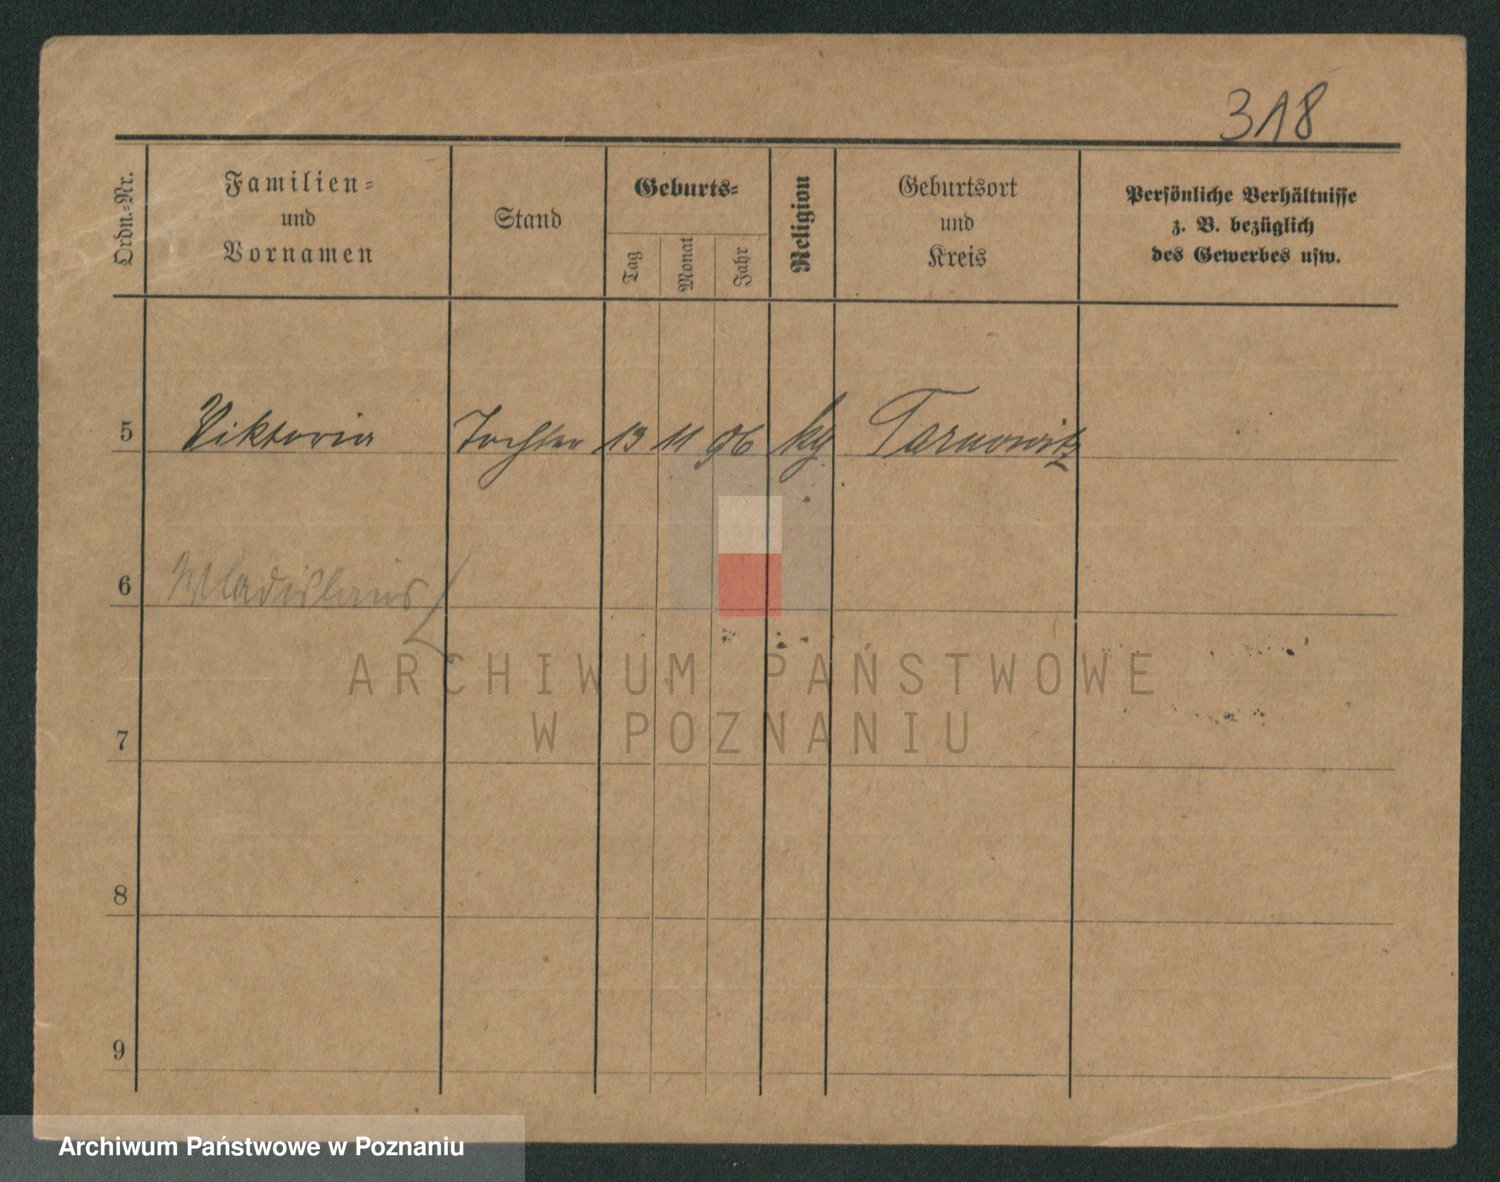 318
Ordn.-Nr.
Familien-
und
Vornamen
Stand
Geburts-
Tag
Monat
Jahr
Religion
Geburtsort
und
Kreis
Persönliche Verhältnisse
z. B. bezüglich
des Gewerbes usw.
5 Viktoria Tochter 13 11 96 Tarnowitz
6 Wladislaus
ARCHIWUM PAŃSTWOWE
W POZNANIU
7
8
9
Archiwum Państwowe w Poznaniu